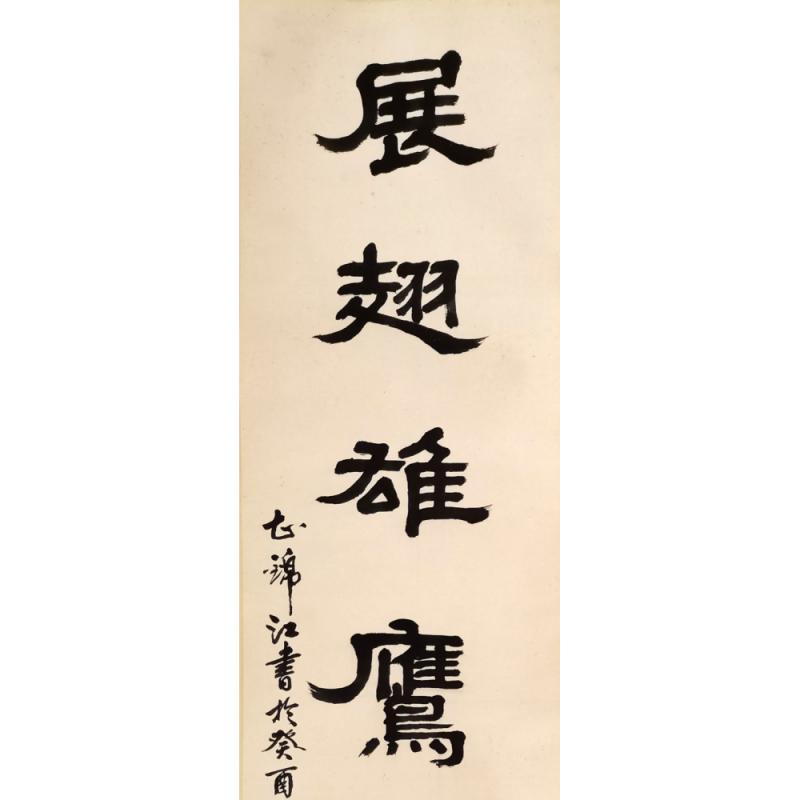 展翅雄鹰
志锦江書於癸酉